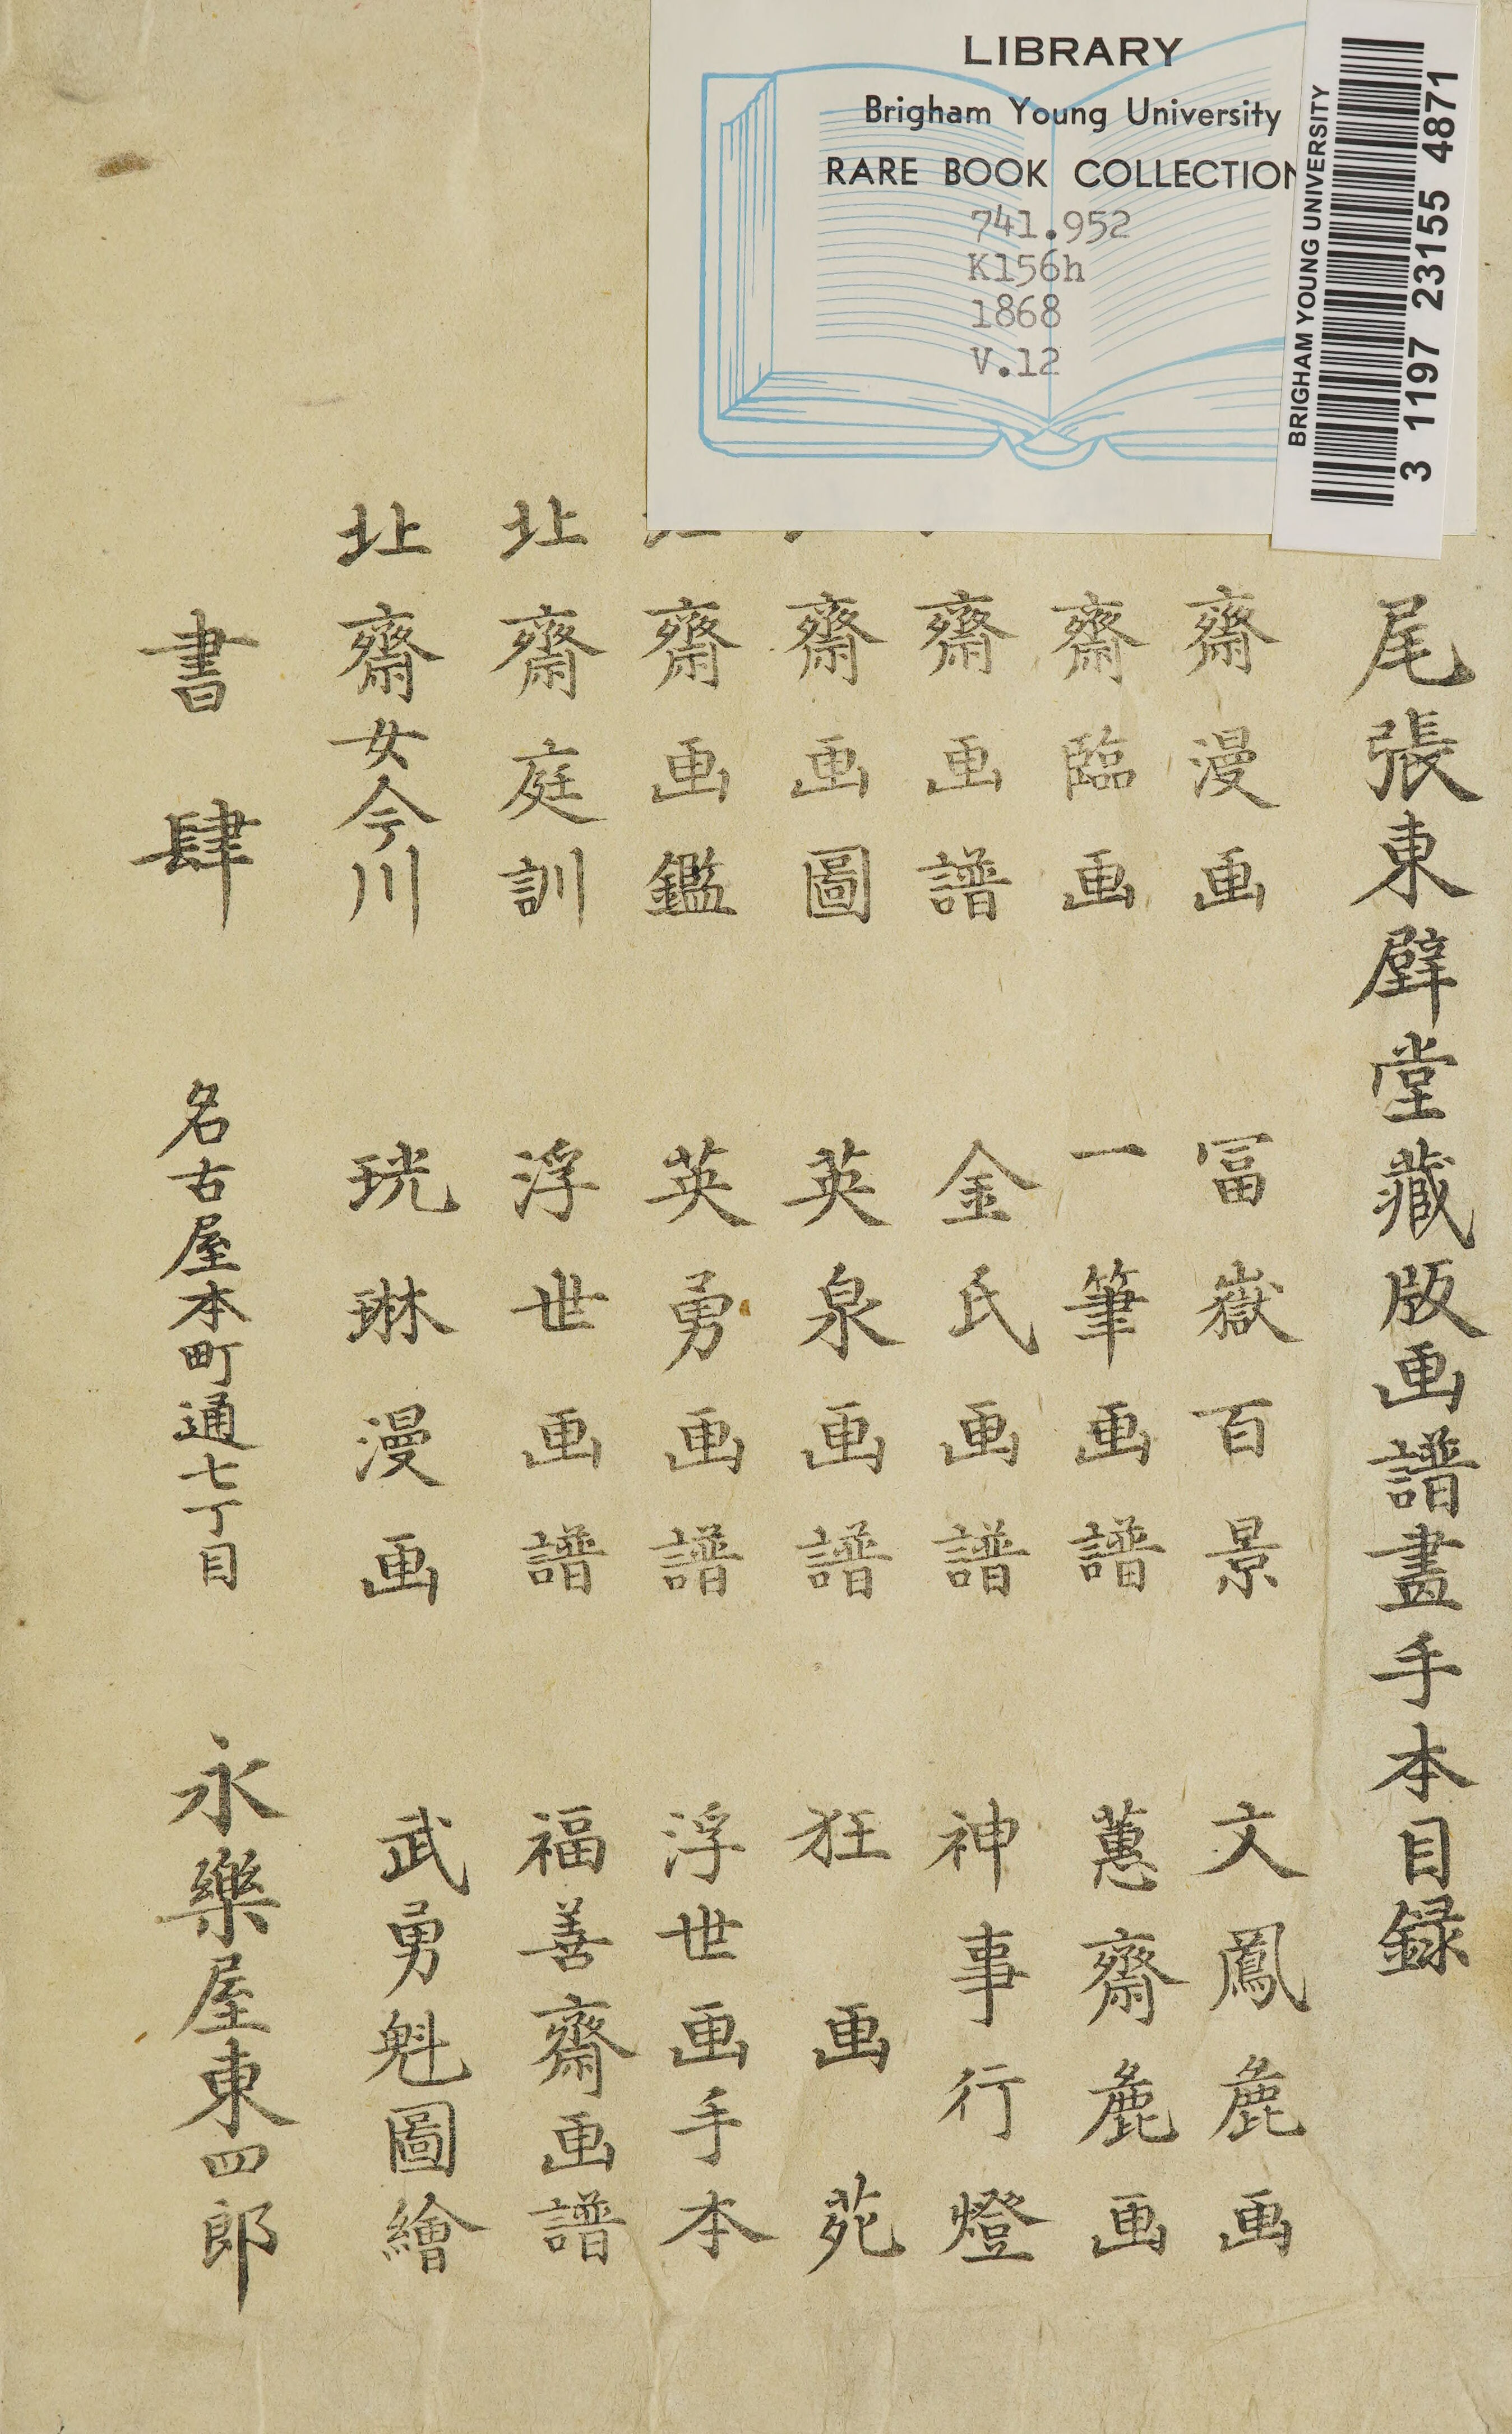 LIBRARY
Brigham Young University
RARE BOOK COLLECTION
741.952
K156h
1868
V.12
BRIGHAM YOUNG UNIVERSITY
3 1197 23155 4871
尾張東壁堂藏版画譜畫手本目録
齋漫画 冨嶽百景 文鳳麁画
齋臨画 一筆画譜 蕙齋麁画
齋画譜 金氏画譜 神事行燈
齋画圖 英泉画譜 狂画苑
齋画鑑 英勇画譜 浮世画手本
北齋庭訓 浮世画譜 福善齋画譜
北齋女今川 珖琳漫画 武勇魁圖繪
書肆 名古屋本町通七丁目 永樂屋東四郎